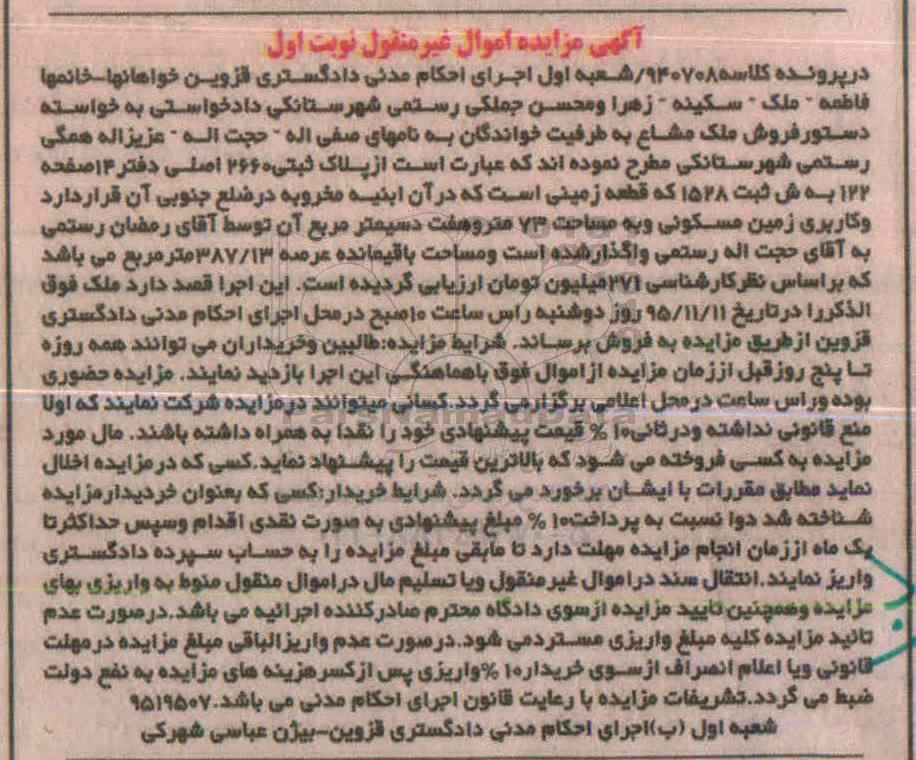 آگهی مزایده اموال غیرمنقول نوبت اول
درپرونده کلاسه۹۴۰۷۰۸/شعبه اول اجرای احکام مدنی دادگستری قزوین خواهانها-خانمها
فاطمه - ملک - سکینه - زهرا ومحسن جملکی رستمی شهرستانکی دادخواستی به خواسته
دستورفروش ملک مشاع به طرفیت خواندگان به نامهای صفی اله - حجت اله - عزیزاله همگی
رستمی شهرستانکی مطرح نموده اند که عبارت است ازپلاک ثبتی۲۶۶۰ اصلی دفتر۱۴صفحه
۱۲۲ به ش ثبت ۱۵۲۸ که قطعه زمینی است که درآن ابنیه مخروبه درضلع جنوبی آن قراردارد
وکاربری زمین مسکونی وبه مساحت ۷۳ متروهفت دسیمتر مربع آن توسط آقای رمضان رستمی
به آقای حجت اله رستمی واگذارشده است ومساحت باقیمانده عرصه ۳۸۷/۱۳مترمربع می باشد
که براساس نظرکارشناسی ۲۷۱میلیون تومان ارزیابی گردیده است. این اجرا قصد دارد ملک فوق
الذکررا درتاریخ ۹۵/۱۱/۱۱ روز دوشنبه راس ساعت ۱۰صبح درمحل اجرای احکام مدنی دادگستری
قزوین ازطریق مزایده به فروش برساند. شرایط مزایده:طالبین وخریداران می توانند همه روزه
تا پنج روزقبل اززمان مزایده ازاموال فوق باهماهنگی این اجرا بازدید نمایند. مزایده حضوری
بوده وراس ساعت درمحل اعلامی برگزارمی گردد.کسانی میتوانند درمزایده شرکت نمایند که اولا
منع قانونی نداشته ودرثانی۱۰ % قیمت پیشنهادی خود را نقدا به همراه داشته باشند. مال مورد
مزایده به کسی فروخته می شود که بالاترین قیمت را پیشنهاد نماید.کسی که درمزایده اخلال
نماید مطابق مقررات با ایشان برخورد می گردد. شرایط خریدار:کسی که بعنوان خردیدارمزایده
شناخته شد دوا نسبت به پرداخت۱۰ % مبلغ پیشنهادی به صورت نقدی اقدام وسپس حداکثرتا
یک ماه اززمان انجام مزایده مهلت دارد تا مابقی مبلغ مزایده را به حساب سپرده دادگستری
واریز نمایند.انتقال سند دراموال غیرمنقول ویا تسلیم مال دراموال منقول منوط به واریزی بهای
مزایده وهمچنین تایید مزایده ازسوی دادگاه محترم صادرکننده اجرائیه می باشد.درصورت عدم
تائید مزایده کلیه مبلغ واریزی مستردمی شود.درصورت عدم واریزالباقی مبلغ مزایده درمهلت
قانونی ویا اعلام انصراف ازسوی خریدار۱۰ %واریزی پس ازکسرهزینه های مزایده به نفع دولت
ضبط می گردد.تشریفات مزایده با رعایت قانون اجرای احکام مدنی می باشد.۹۵۱۹۵۰۷
شعبه اول (ب)اجرای احکام مدنی دادگستری قزوین-بیژن عباسی شهرکی